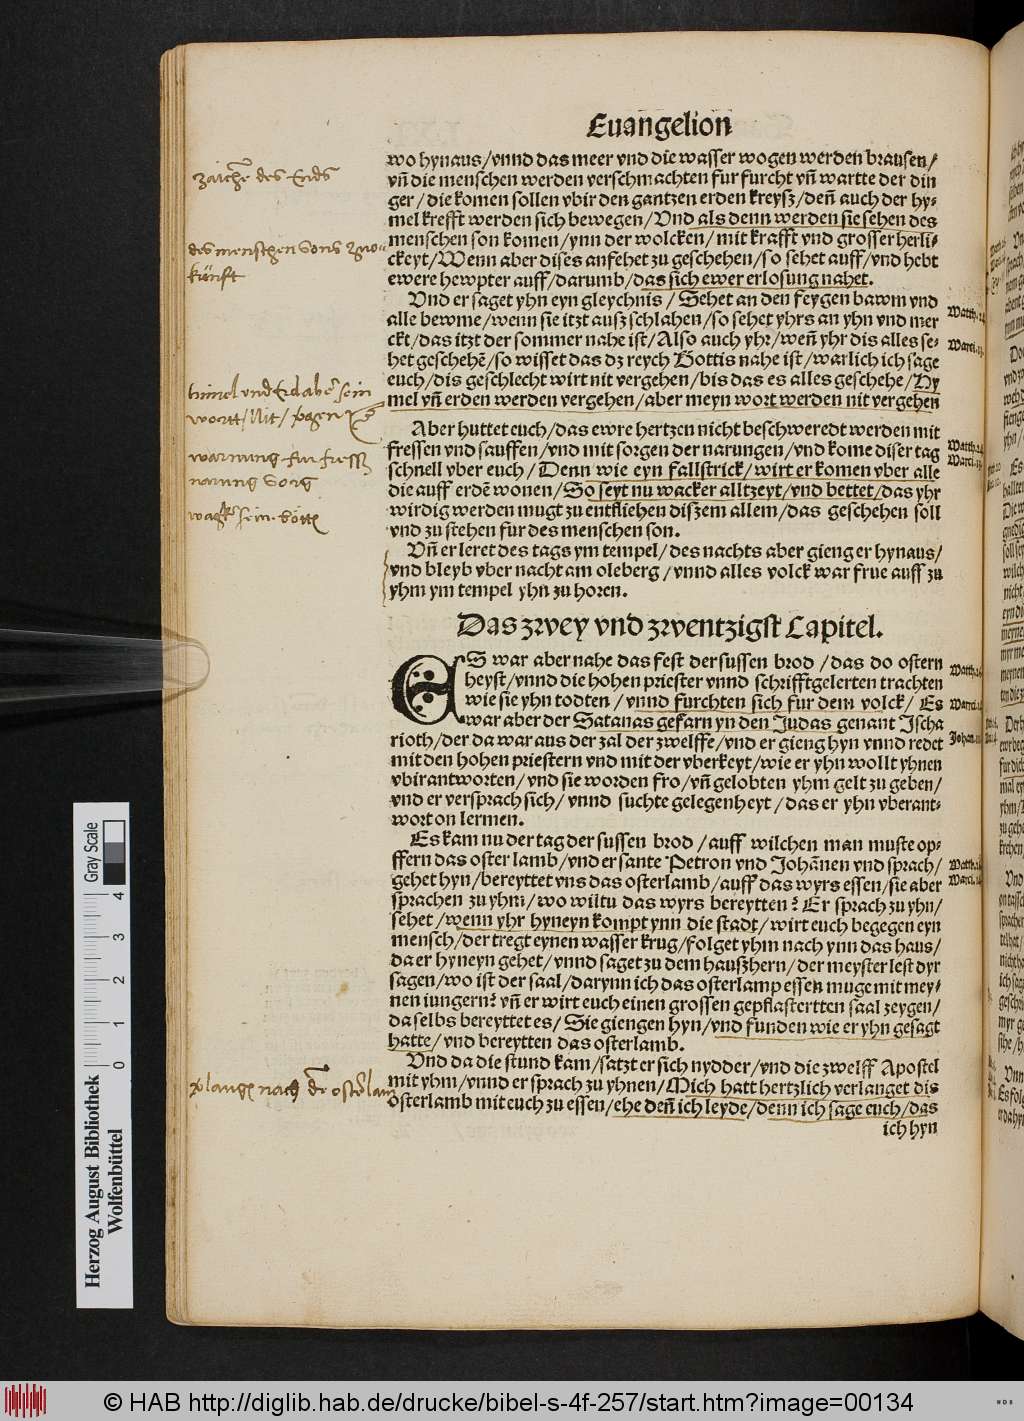 Euangelion
wo hynaus/vnnd das meer vnd die wasser wogen werden brausen/
vñ die menschen werden verschmachten fur furcht vñ wartte der din
ger/die komen sollen vbir den gantzen erden kreysz/deñ auch der hy-
mel krefft werden sich bewegen/Vnd als denn werden sie sehen des
menschen son komen/ynn der wolcken/mit krafft vnd grosser herli-
ckeyt/Wenn aber dises anfehet zu geschehen/so sehet auff/vnd hebt
ewere hewpter auff/darumb/das sich ewer erlosung nahet.
Vnd er saget yhn eyn gleychnis/Sehet an den feygen bawm vnd
alle bewme/wenn sie itzt ausz schlahen/so sehet yhrs an yhn vnd mer
ckt/das itzt der sommer nahe ist/Also auch yhr/weñ yhr dis alles se-
het geschehē/so wisset das dz reych Gottis nahe ist/warlich ich sage
euch/dis geschlecht wirt nit vergehen/bis das es alles geschehe/Hy
mel vñ erden werden vergehen/aber meyn wort werden nit vergehen
Aber huttet euch/das ewre hertzen nicht beschweredt werden mit
fressen vnd sauffen/vnd mit sorgen der narungen/vnd kome diser tag
schnell vber euch/Denn wie eyn fallstrick/wirt er komen vber alle
die auff erdē wonen/So seyt nu wacker alltzeyt/vnd bettet/das yhr
wirdig werden mugt zu entfliehen diszem allem/das geschehen soll
vnd zu stehen fur des menschen son.
Vñ er leret des tags ym tempel/des nachts aber gieng er hynaus/
vnd bleyb vber nacht am oleberg/vnnd alles volck war frue auff zu
yhm ym tempel yhn zu horen.
Das zwey vnd zwentzigst Capitel.
ES war aber nahe das fest der sussen brod/das do ostern
heyst/vnnd die hohen priester vnnd schrifftgelerten trachten
wie sie yhn todten/vnnd furchten sich fur dem volck/Es
war aber der Satanas gefarn yn den Judas genant Ischa
rioth/der da war aus der zal der zwelffe/vnd er gieng hyn vnnd redet
mit den hohen priestern vnd mit der vberkeyt/wie er yhn wollt yhnen
vbirantworten/vnd sie worden fro/vñ gelobten yhm gelt zu geben/
vnd er versprach sich/vnnd suchte gelegenheyt/das er yhn vberant-
wort on lermen.
Es kam nu der tag der sussen brod/auff wilchen man muste op-
ffern das oster lamb/vnd er sante Petron vnd Johānen vnd sprach/
gehet hyn/bereyttet vns das osterlamb/auff das wyrs essen/sie aber
sprachen zu yhm/wo wiltu das wyrs bereytten? Er sprach zu yhn/
sehet/wenn yhr hyneyn kompt ynn die stadt/wirt euch begegen eyn
mensch/der tregt eynen wasser krug/folget yhm nach ynn das haus/
da er hyneyn gehet/vnnd saget zu dem hauszhern/der meyster lest dyr
sagen/wo ist der saal/darynn ich das osterlamp essen muge mit mey-
nen iungern? vñ er wirt euch einen grossen gepflastertten saal zeygen/
daselbs bereyttet es/Sie giengen hyn/vnd funden wie er yhn gesagt
hatte/vnd bereytten das osterlamb.
Vnd da die stund kam/satzt er sich nydder/vnd die zwelff Apostel
mit yhm/vnnd er sprach zu yhnen/Mich hatt hertzlich verlanget dis
osterlamb mit euch zu essen/ehe deñ ich leyde/denn ich sage euch/das
ich hyn
Matth.24
Marci.13
Matth.24
Marci.13
Matth.26
Marci.14
Johan.13
Matth.26
Marci.14
des Ends
des menschen Sons
kunfft
himel vnd Erd aber sein
wortt/Nit/
warnung fur fress
narung sorg
nach
Gray Scale
0 1 2 3 4
Herzog August Bibliothek
Wolfenbüttel
© HAB http://diglib.hab.de/drucke/bibel-s-4f-257/start.htm?image=00134